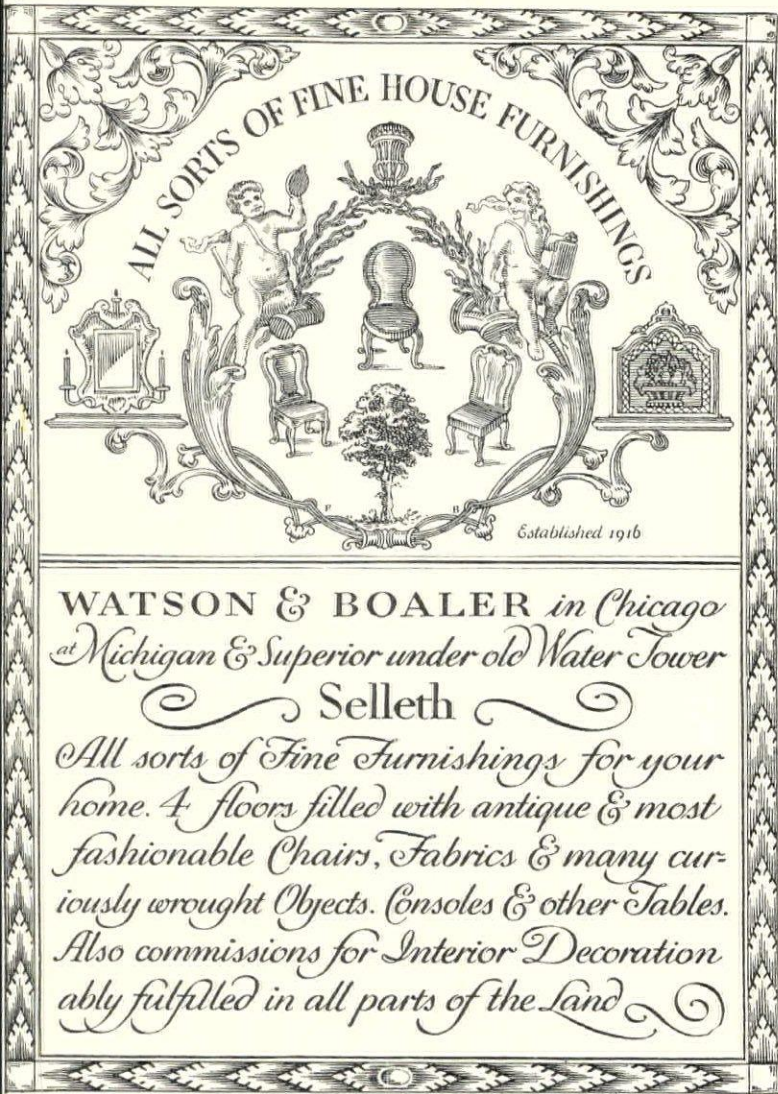 ALL SORTS OF FINE HOUSE FURNISHINGS
F B
Established 1916
WATSON & BOALER in Chicago
at Michigan & Superior under old Water Tower
Selleth
All sorts of Fine Furnishings for your
home. 4 floors filled with antique & most
fashionable Chairs, Fabrics & many cur-
iously wrought Objects. Consoles & other Tables.
Also commissions for Interior Decoration
ably fulfilled in all parts of the Land